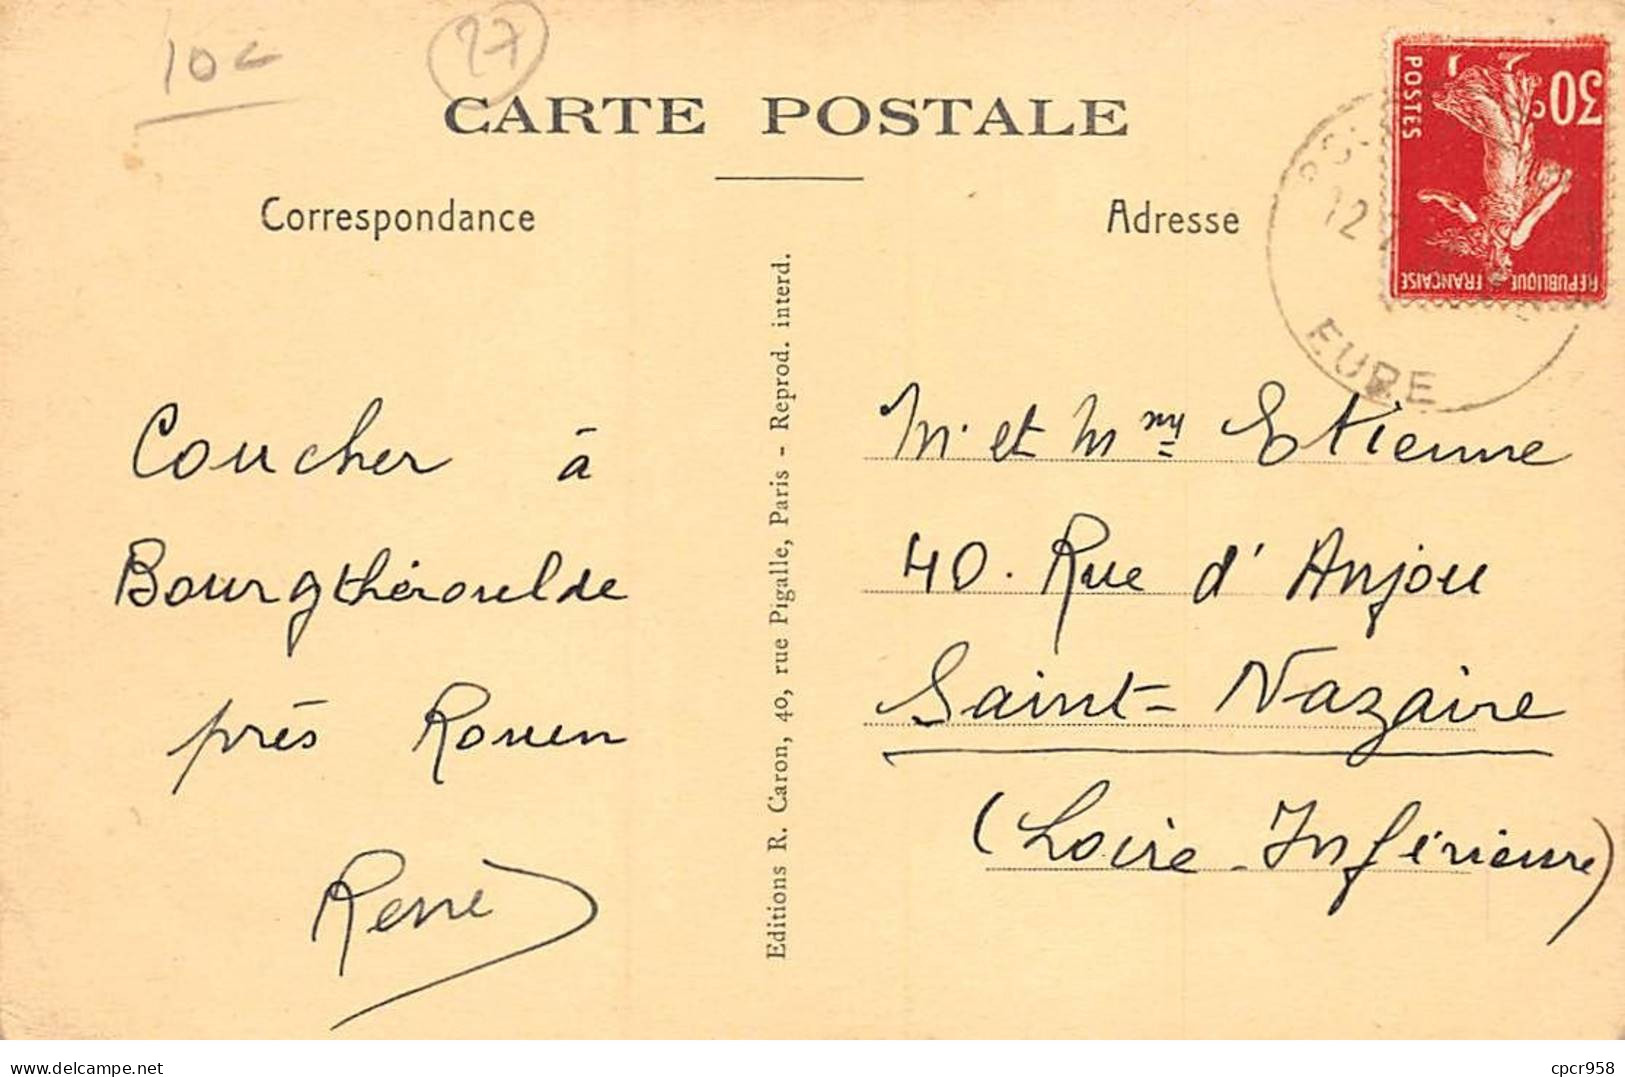 10c
27
CARTE POSTALE
Correspondance
Adresse
30c
POSTES
REPUBLIQUE FRANÇAISE
12
EURE
Coucher à
Bourgthéroulde
près Rouen
René
Editions R. Caron, 40, rue Pigalle, Paris - Reprod. interd.
M. et Mme Etienne
40. Rue d'Anjou
Saint-Nazaire
(Loire-Inférieure)
cpcr958